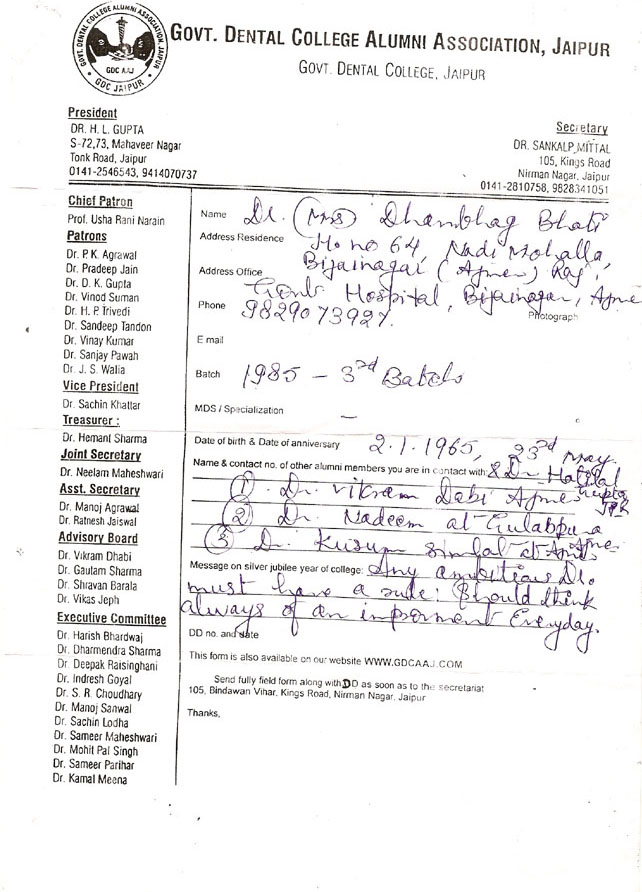 GOVT. DENTAL COLLEGE ALUMNI ASSOCIATION, JAIPUR
GDC AAJ
GDC JAIPUR
GOVT. DENTAL COLLEGE ALUMNI ASSOCIATION, JAIPUR
GOVT. DENTAL COLLEGE, JAIPUR
President
DR. H. L. GUPTA
S-72,73, Mahaveer Nagar
Tonk Road, Jaipur
0141-2546543, 9414070737
Secretary
DR. SANKALP MITTAL
105, Kings Road
Nirman Nagar, Jaipur
0141-2810758, 9828341051
Chief Patron
Prof. Usha Rani Narain
Patrons
Dr. P. K. Agrawal
Dr. Pradeep Jain
Dr. D. K. Gupta
Dr. Vinod Suman
Dr. H. P. Trivedi
Dr. Sandeep Tandon
Dr. Vinay Kumar
Dr. Sanjay Pawah
Dr. J. S. Walia
Vice President
Dr. Sachin Khattar
Treasurer :
Dr. Hemant Sharma
Joint Secretary
Dr. Neelam Maheshwari
Asst. Secretary
Dr. Manoj Agrawal
Dr. Ratnesh Jaiswal
Advisory Board
Dr. Vikram Dhabi
Dr. Gautam Sharma
Dr. Shravan Barala
Dr. Vikas Jeph
Executive Committee
Dr. Harish Bhardwaj
Dr. Dharmendra Sharma
Dr. Deepak Raisinghani
Dr. Indresh Goyal
Dr. S. R. Choudhary
Dr. Manoj Sanwal
Dr. Sachin Lodha
Dr. Sameer Maheshwari
Dr. Mohit Pal Singh
Dr. Sameer Parihar
Dr. Kamal Meena
Name Dr. (Mrs) Dhanbhag Bhati
Address Residence H. no 64, Nadi Mohalla,
Bijainagar (Ajmer) Raj.
Address Office Govt Hospital, Bijainagar, Ajme
Phone 9829073927.
Photograph
E mail
Batch 1985 - 3rd Batch
MDS / Specialization —
Date of birth & Date of anniversary 2.1.1965, 23rd May
Name & contact no. of other alumni members you are in contact with: & Dr
Gupta JPR
1. Dr. Vikram Dabi Ajmer
2. Dr. Nadeem at Gulabpura
3. Dr. Kusum at Ajmer
Message on silver jubilee year of college: Any ambitious Dr.
must have a rule: Should think
always of an Everyday.
DD no. and date
This form is also available on our website WWW.GDCAAJ.COM
Send fully field form along with DD as soon as to the secretariat
105, Bindawan Vihar, Kings Road, Nirman Nagar, Jaipur
Thanks,